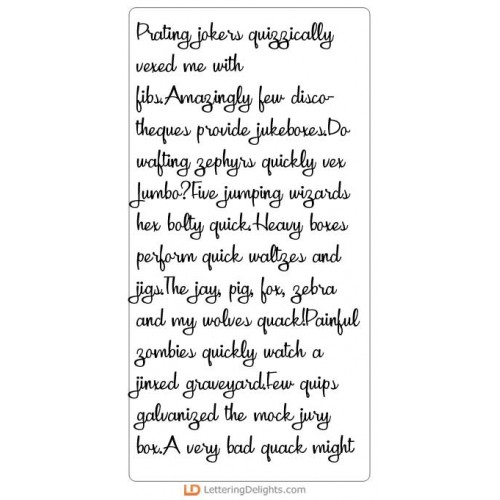 Prating jokers quizzically
vexed me with
fibs.Amazingly few disco-
theques provide jukeboxes.Do
wafting zephyrs quickly vex
Jumbo?Five jumping wizards
hex bolty quick.Heavy boxes
perform quick waltzes and
jigs.The jay, pig, fox, zebra
and my wolves quack!Painful
zombies quickly watch a
jinxed graveyard.Few quips
galvanized the mock jury
box.A very bad quack might
LD LetteringDelights.com